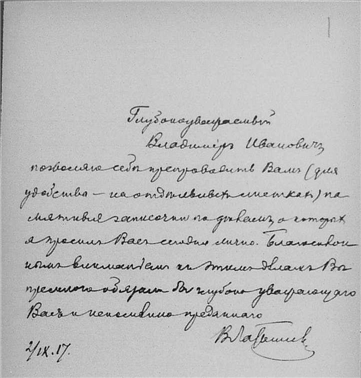 Глубокоуважаемый
Владимiръ Ивановичъ
позволяю себѣ препроводить Вамъ (для
удобства – на отдѣльныхъ листкахъ) па
мятныя записочки по дѣламъ, о которыхъ
я просилъ Васъ сегодня лично. Благосклон
нымъ вниманiемъ къ этимъ дѣламъ Вы
премного обяжете глубоко уважающаго
Васъ и неизмѣнно преданнаго
2/IX.17.